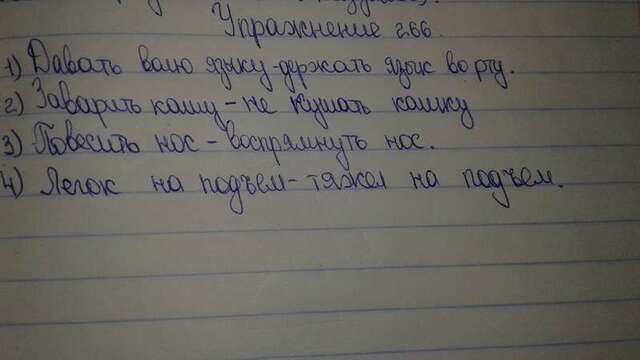 Упражнение 266.
1) Давать волю языку - держать язык во рту.
2) Заварить кашу - не кушать кашку
3) Повесить нос - воспрямнуть нос.
4) Легок на подъем - тяжел на подъем.